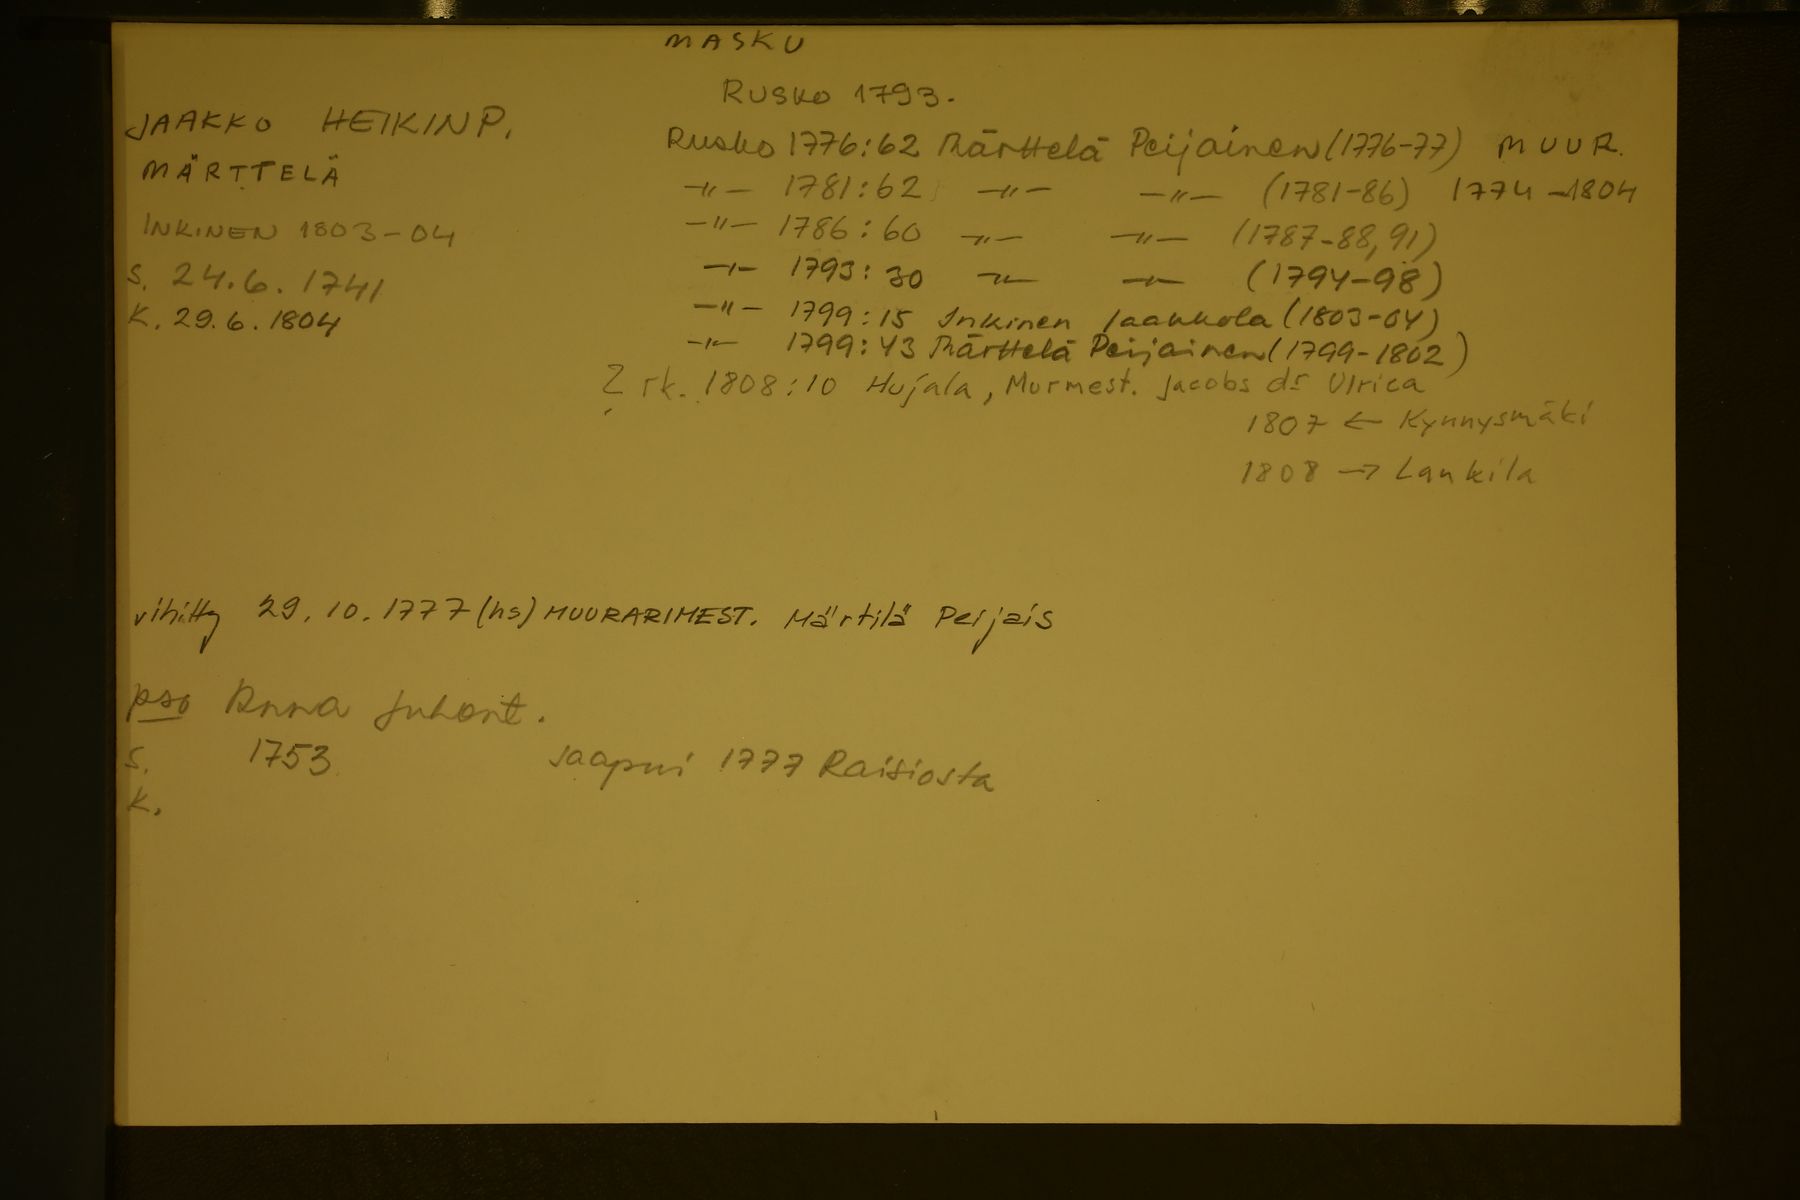 MASKU
RUSKO 1793.
JAAKKO HEIKINP.
MÄRTTELÄ
INKINEN 1803-04
S. 24.6.1741
K. 29.6.1804
Rusko 1776:62 Märttelä Peijainen (1776-77) MUUR.
-"- 1781:62 -"- -"- (1781-86) 1774-1804
-"- 1786:60 -"- -"- (1787-88, 91)
-"- 1793:30 -"- -"- (1794-98)
-"- 1799:15 Inkinen Jaakkola (1803-04)
-"- 1799:43 Märttelä Peijainen (1799-1802)
rk. 1808:10 Hujala, Murmest. Jacobs dr Ulrica
1807 ← Kynnysmäki
1808 → Lankila
vihitty 29.10.1777 (hs) MUURARIMEST. Märtilä Peijais
pso Anna Juhont.
S. 1753 saapui 1777 Raisiosta
K.